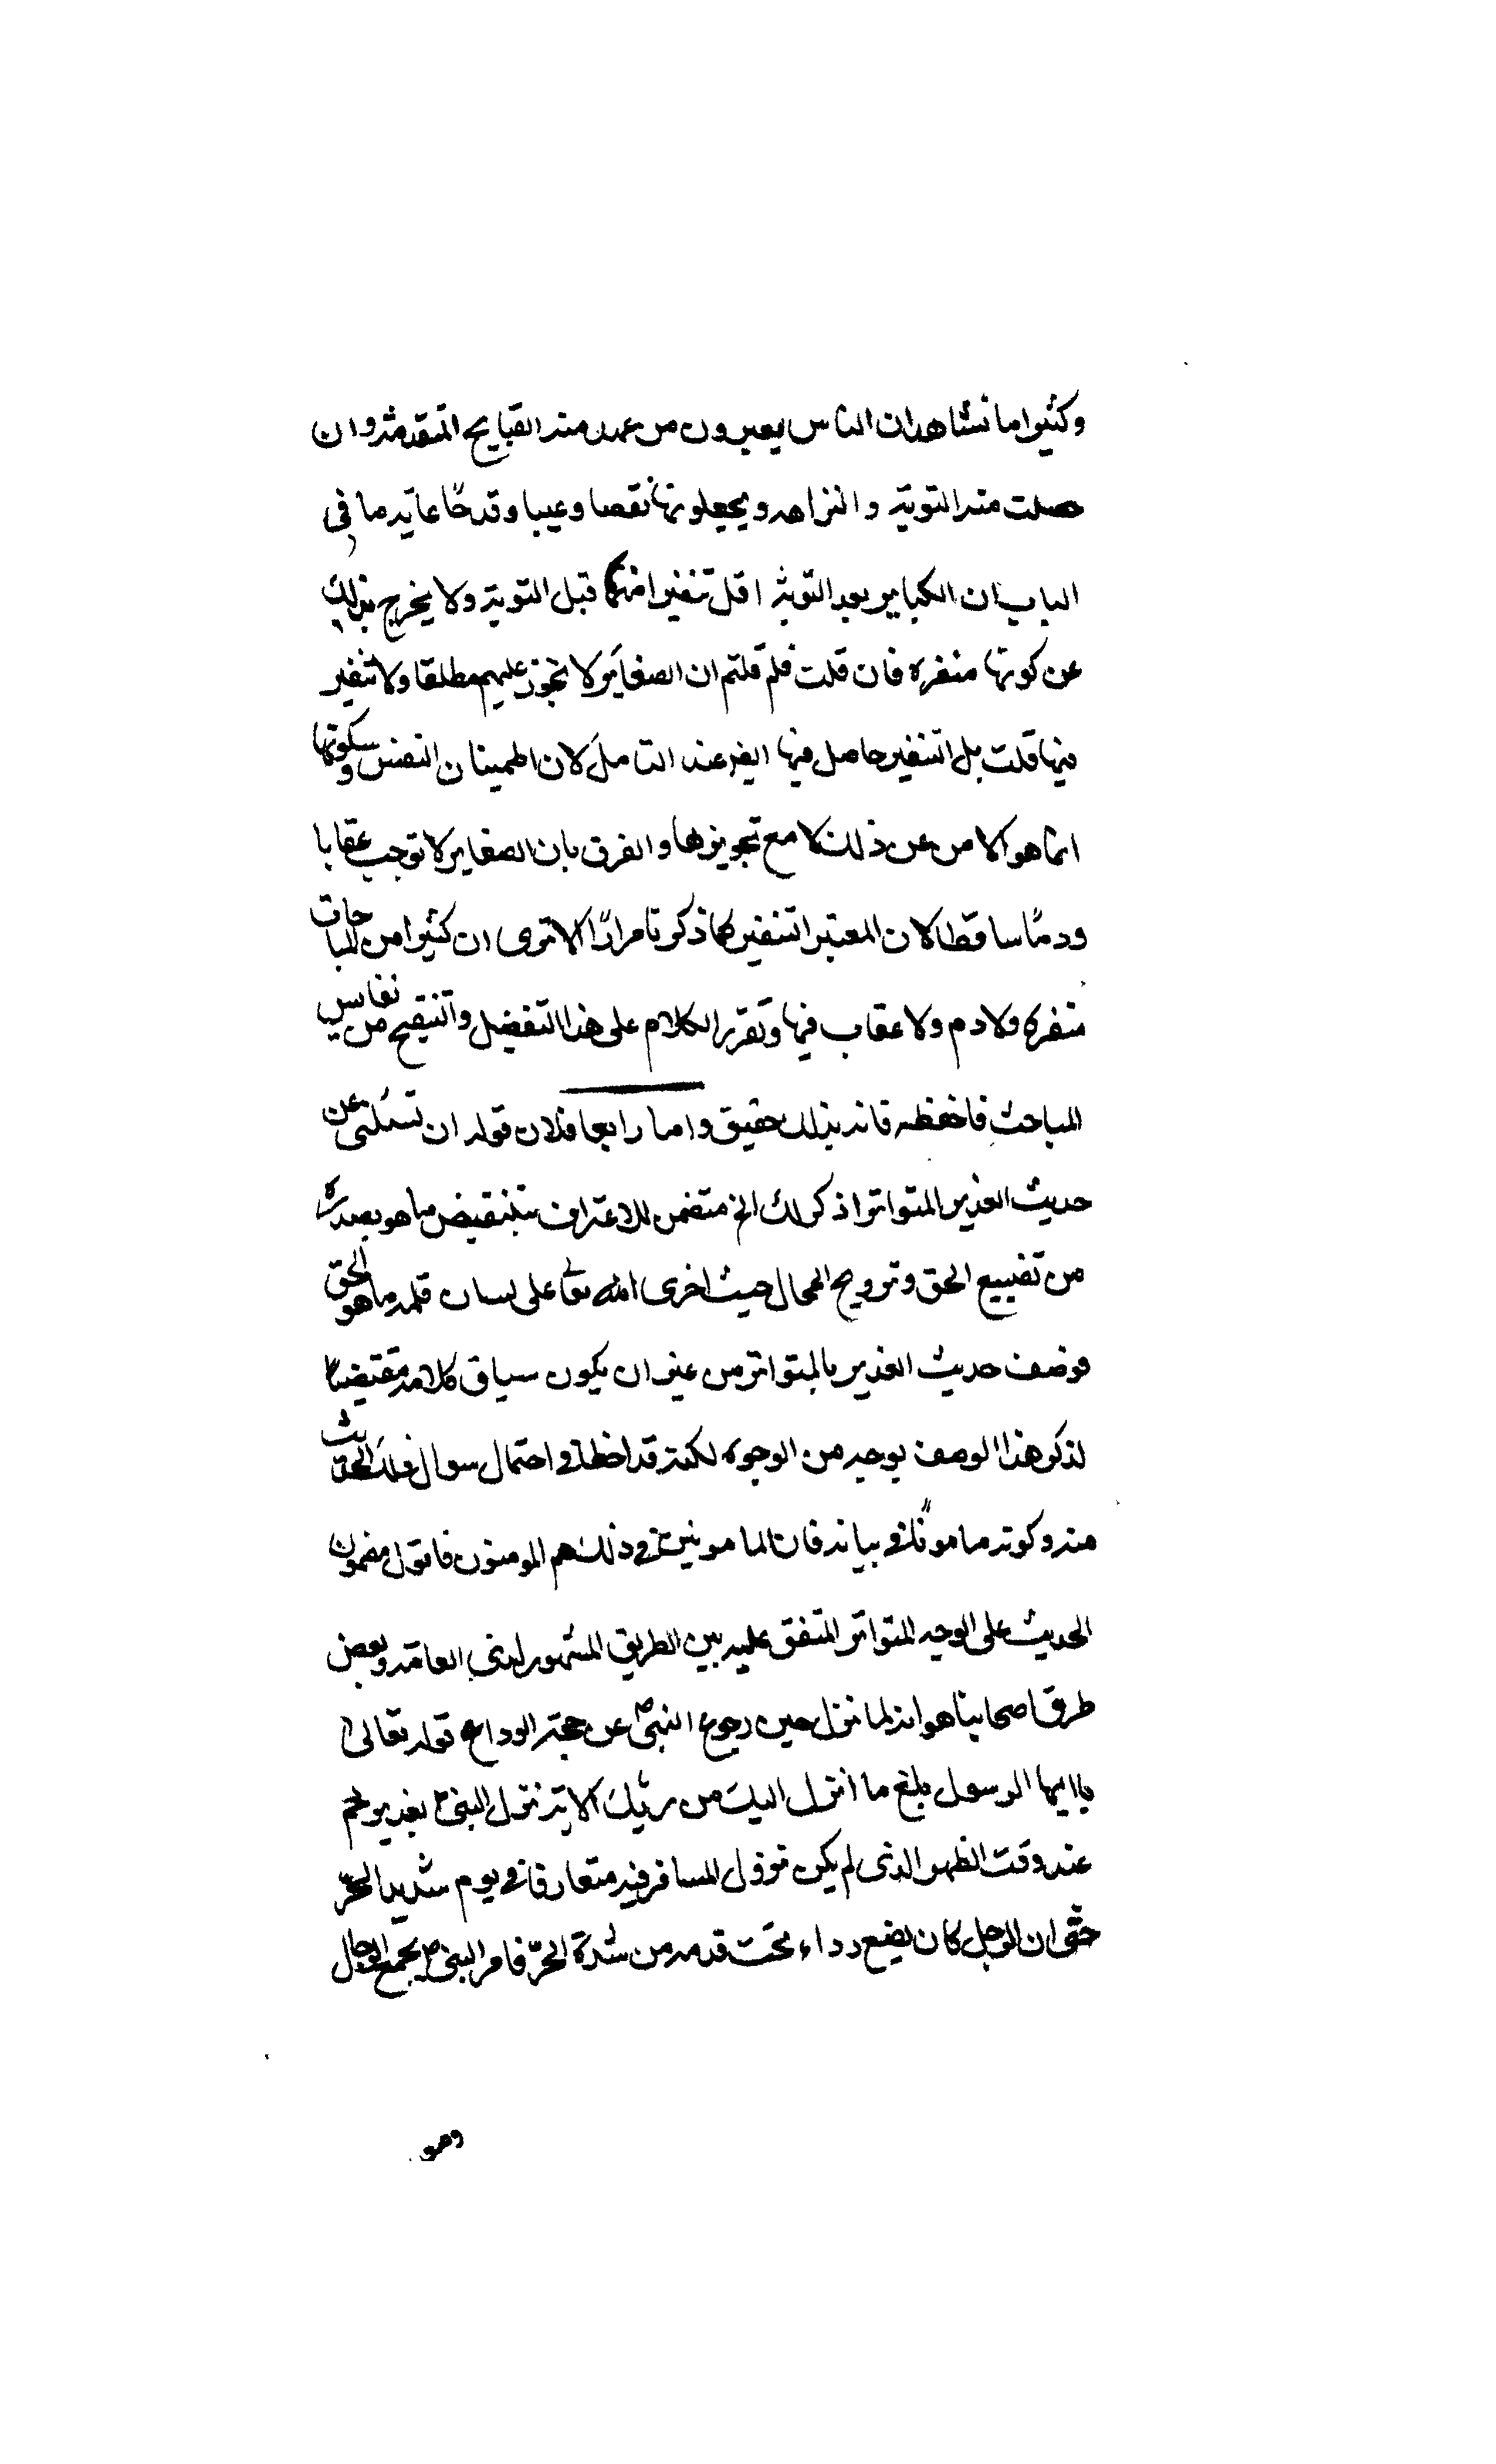 وكثيرا ما نشاهد ان الناس يعيرون من عهد منه القبايح المتقدمة وان
حصلت منه التوبة والنزاهه ويجعلونها نقصا وعيبا وقدحًا غاية ما في
الباب ان الكباير بعد التوبة اقل تنفيرا منها قبل التوبة ولا يخرج بذلك
عن كونها منفره فان قلت فلم قلتم ان الصغاير لا تجوز عليهم مطلقا ولا تنفير
فيها قلت بل التنفير حاصل فيها ايض عند التامل لان اطمينان النفس وسكونها
انما هو الامن عن ذلك لا مع تجويزها والفرق بان الصغاير لا توجب عقابا
وذمًا ساقط لان المعتبر التنفير كما ذكرنا مرارًا الا ترى ان كثيرا من المباحات
منفره ولا ذم ولا عقاب فيها وتقرير الكلام على هذا التفضيل والتنقيح من نفايس
المباحث فاحفظه فانه بذلك حقيق واما رابعا فلان قوله ان تسئلني عن
حديث الغدير المتواتر اذكر لك الخ متضمن للاعتراف بنقيض ما هو بصدده
من تضييع الحق وترويج المحال حيث اجرى الله تعالى على لسان قلمه ما هو الحق
فوصف حديث الغدير بالمتواتر من غير ان يكون سياق كلامه مقتضيا
لذكر هذا الوصف بوجه من الوجوه لكنه قد اخطا في احتمال سوال ذلك الحديث
منه وكونه مامونًا في بيانه فان المامونين في ذلك هم المومنون فاقول مضمون
الحديث على الوجه المتواتر المتفق عليه بين الطريق المشهور لدى العامة وبعض
طرق اصحابنا هو انه لما نزل حين رجوع النبي ص عن حجة الوداع قوله تعالى
يا ايها الرسول بلغ ما أنزل اليك من ربك الاية نزل النبي ص بغدير خم
عند وقت الظهر الذي لم يكن نزول المسافر فيه متعارفا في يوم شديد الحرّ
حتى ان الرجل كان يضع رداءه تحت قدمه من شدة الحرّ فامر النبي ص بجمع الرحال
وهو